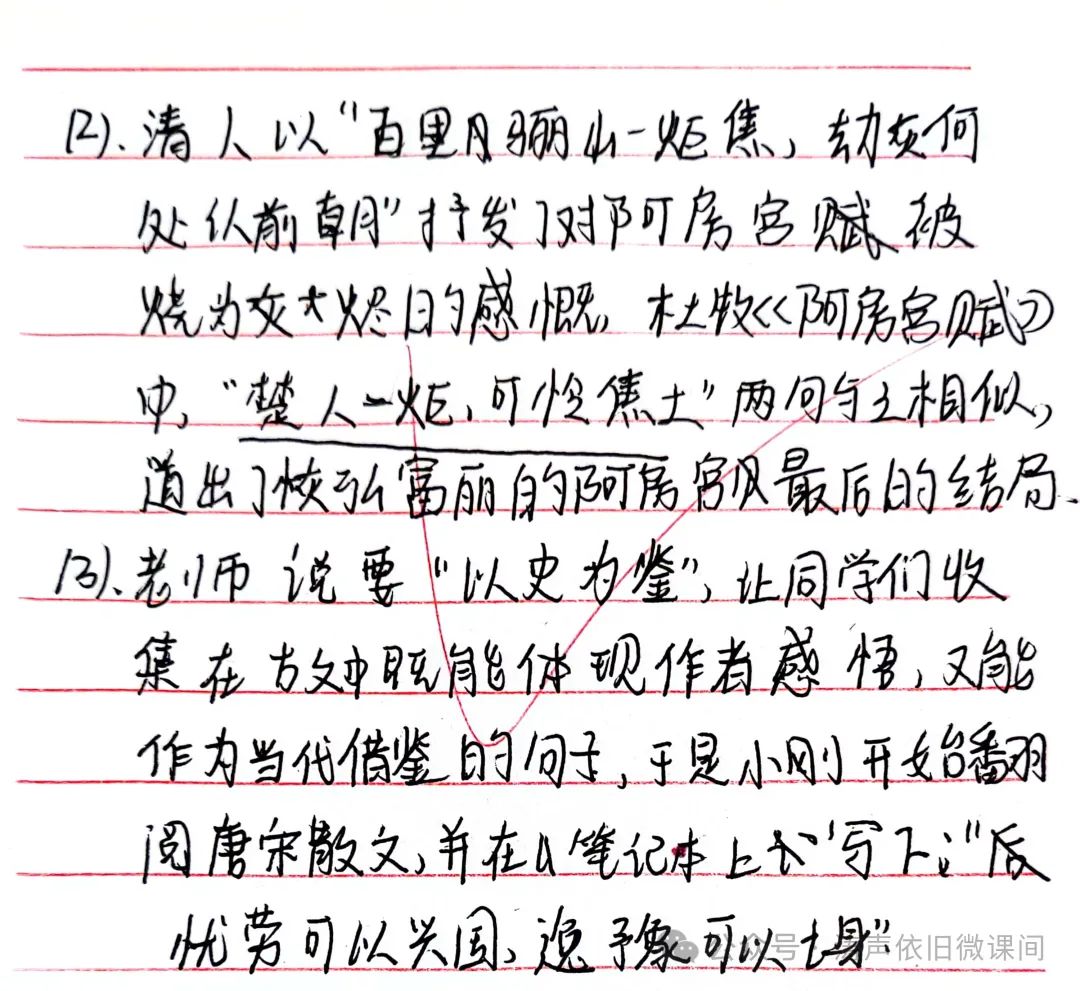 (2)、清人以"百里骊山一炬焦,劫灰何
处认前朝"抒发了对阿房宫赋被
烧为灰烬的感慨,杜牧《阿房宫赋》
中,"楚人一炬,可怜焦土"两句与之相似,
道出了恢弘富丽的阿房宫最后的结局.
(3)、老师说要"以史为鉴",让同学们收
集在古文中既能体现作者感悟,又能
作为当代借鉴的句子,于是小刚开始翻
阅唐宋散文,并在笔记本上写下:"
忧劳可以兴国,逸豫可以亡身"
公众号·声依旧微课间